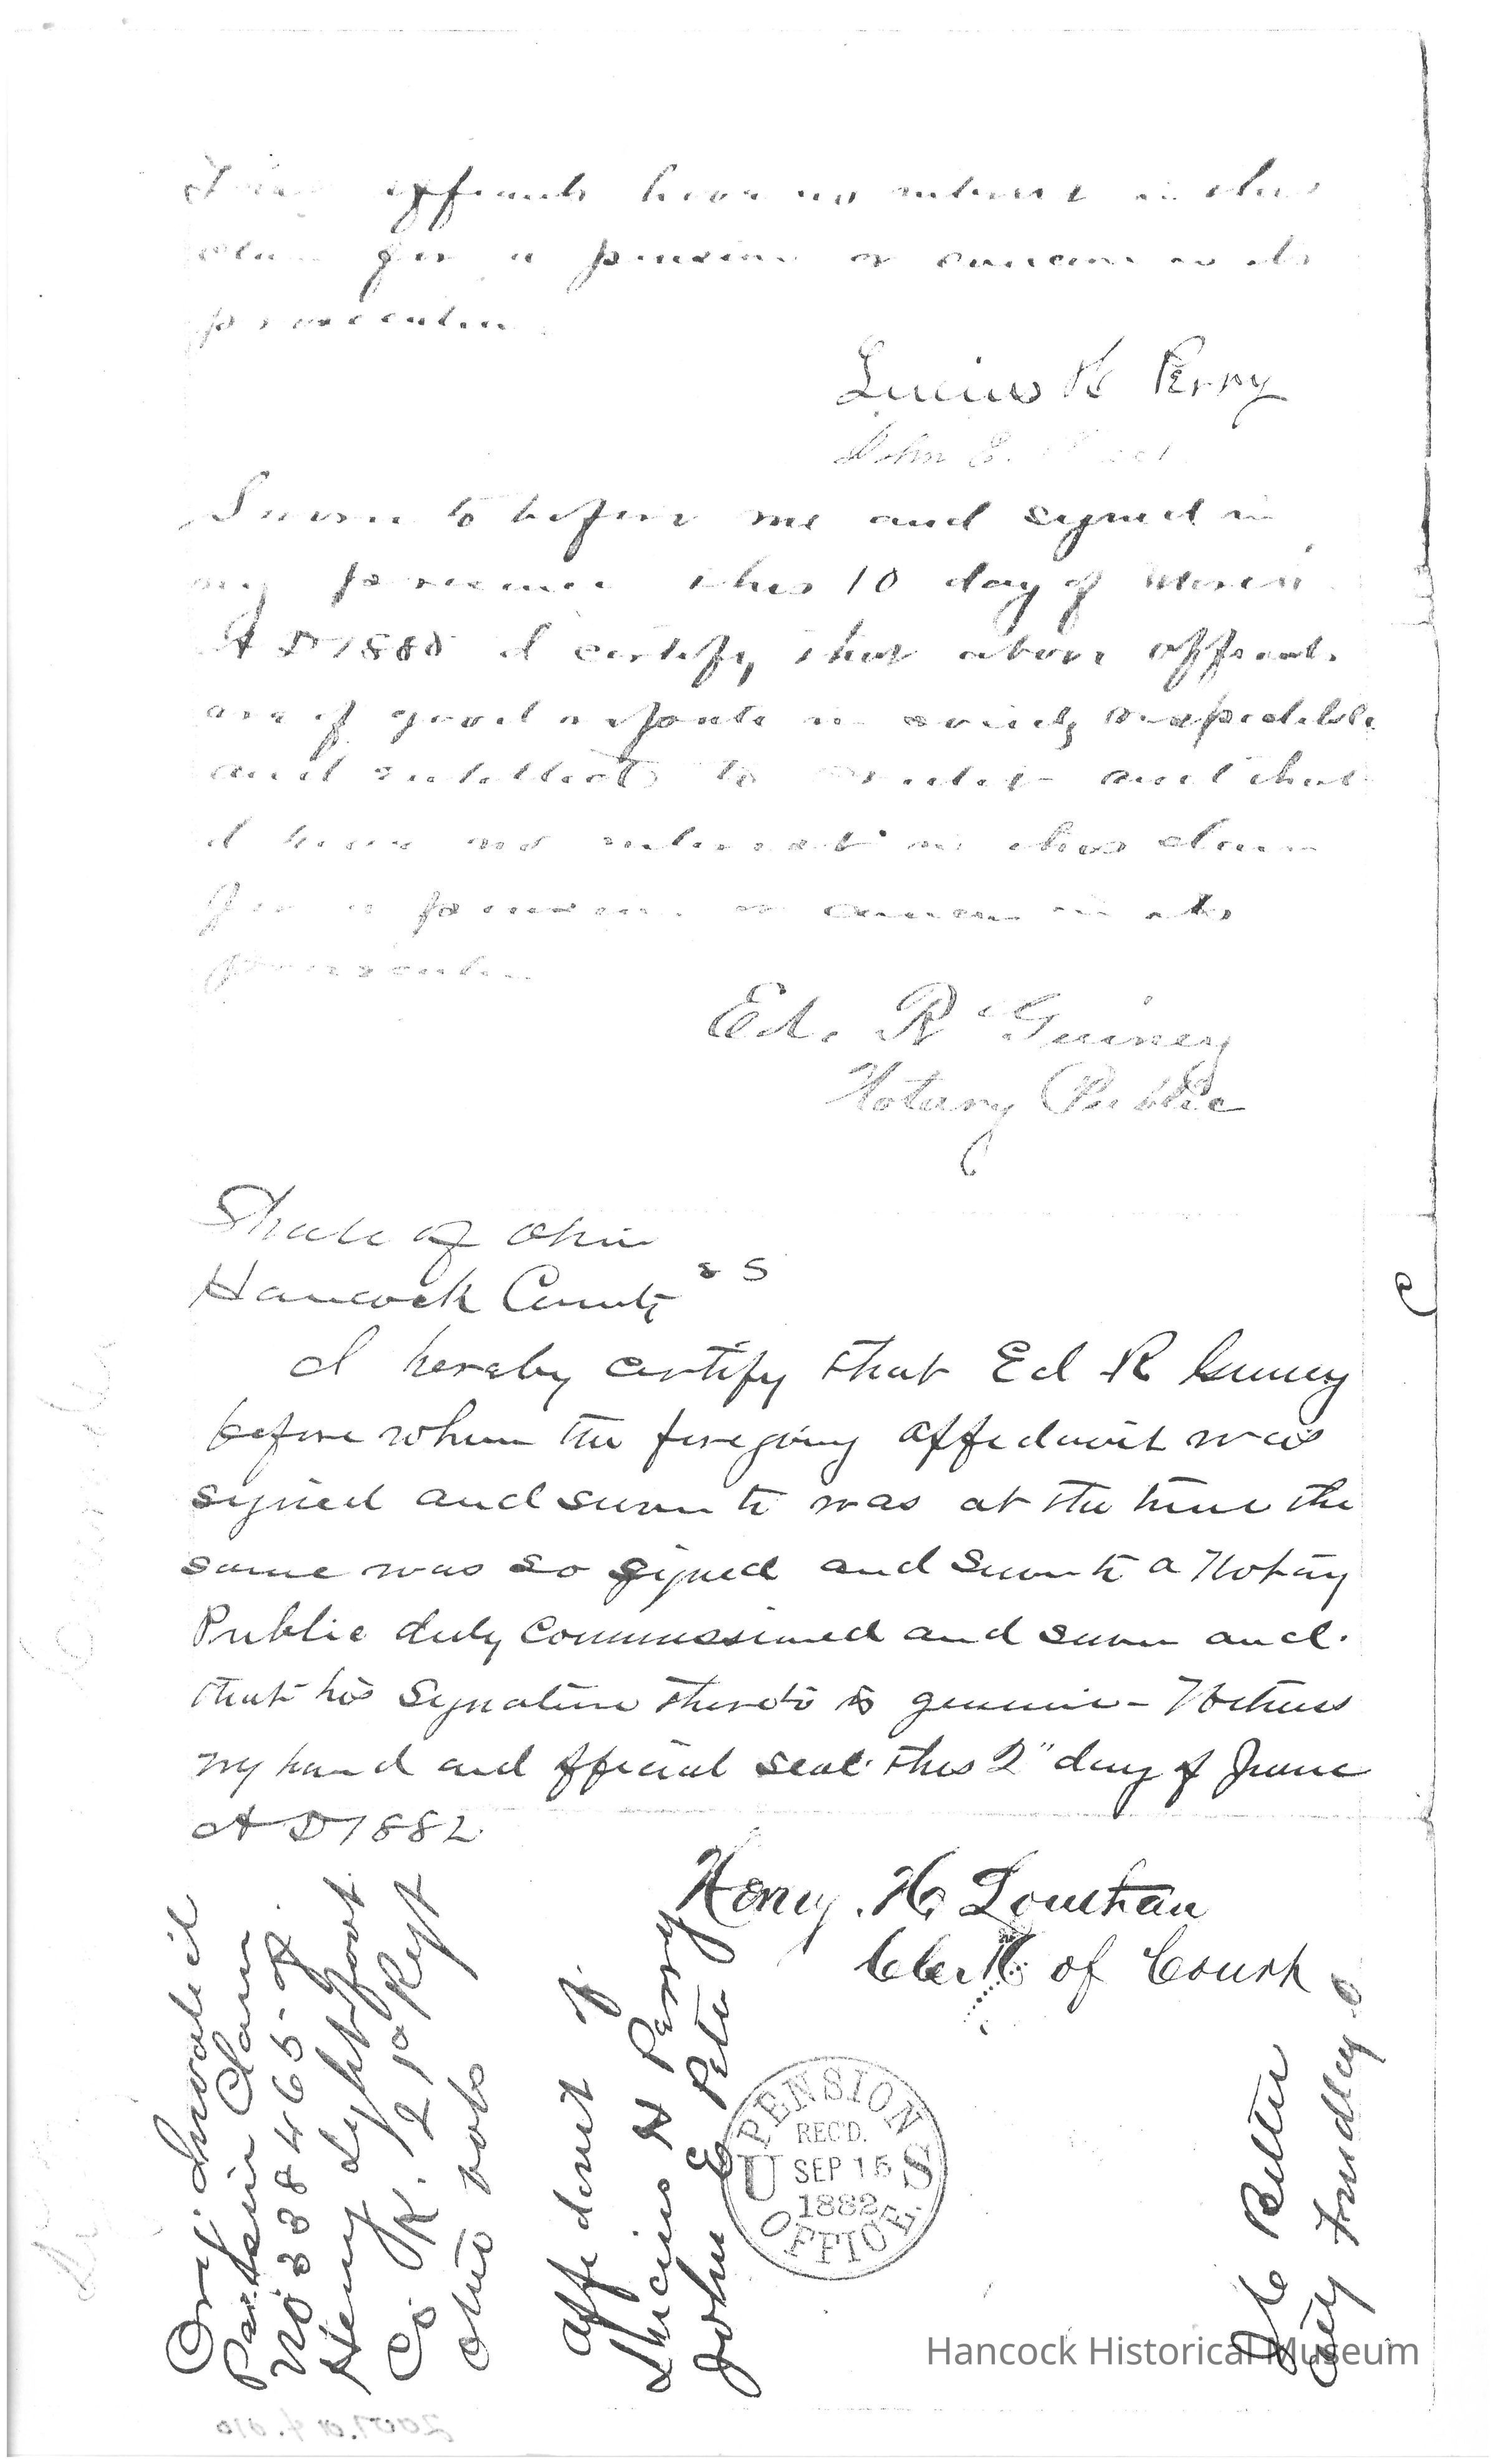 affiants have no interest in this
claim for a pension or concern in its
prosecution.
Lucius H Perry
John E.
Sworn to before me and signed in
my presence this 10 day of
A D 188 I certify that above affiants
are of good repute in society respectable
and entitled to credit and that
I have no interest in this claim
for a pension or concern in its
prosecution
Ed. R Guiney
Notary Public
State of Ohio
Hancock County ss
I hereby certify that Ed R Guiney
before whom the foregoing affidavit was
signed and sworn to was at the time the
same was so signed and sworn to a Notary
Public duly commissioned and sworn and
that his signature thereto is genuine - Witness
my hand and official seal this 2" day of June
A D 1882
Henry. H. Louthan
Clerk of Court
Orig. Invalid
Pension Claim
No 338465 of
Henry Lightfoot
Co. K. 21st Regt
Ohio Vols
Affidavit of
Lucius H Perry
John E Peter
U S PENSION OFFICE
REC'D.
SEP 15
1882
Atty Findley O
Hancock Historical Museum
2007.01.4.010